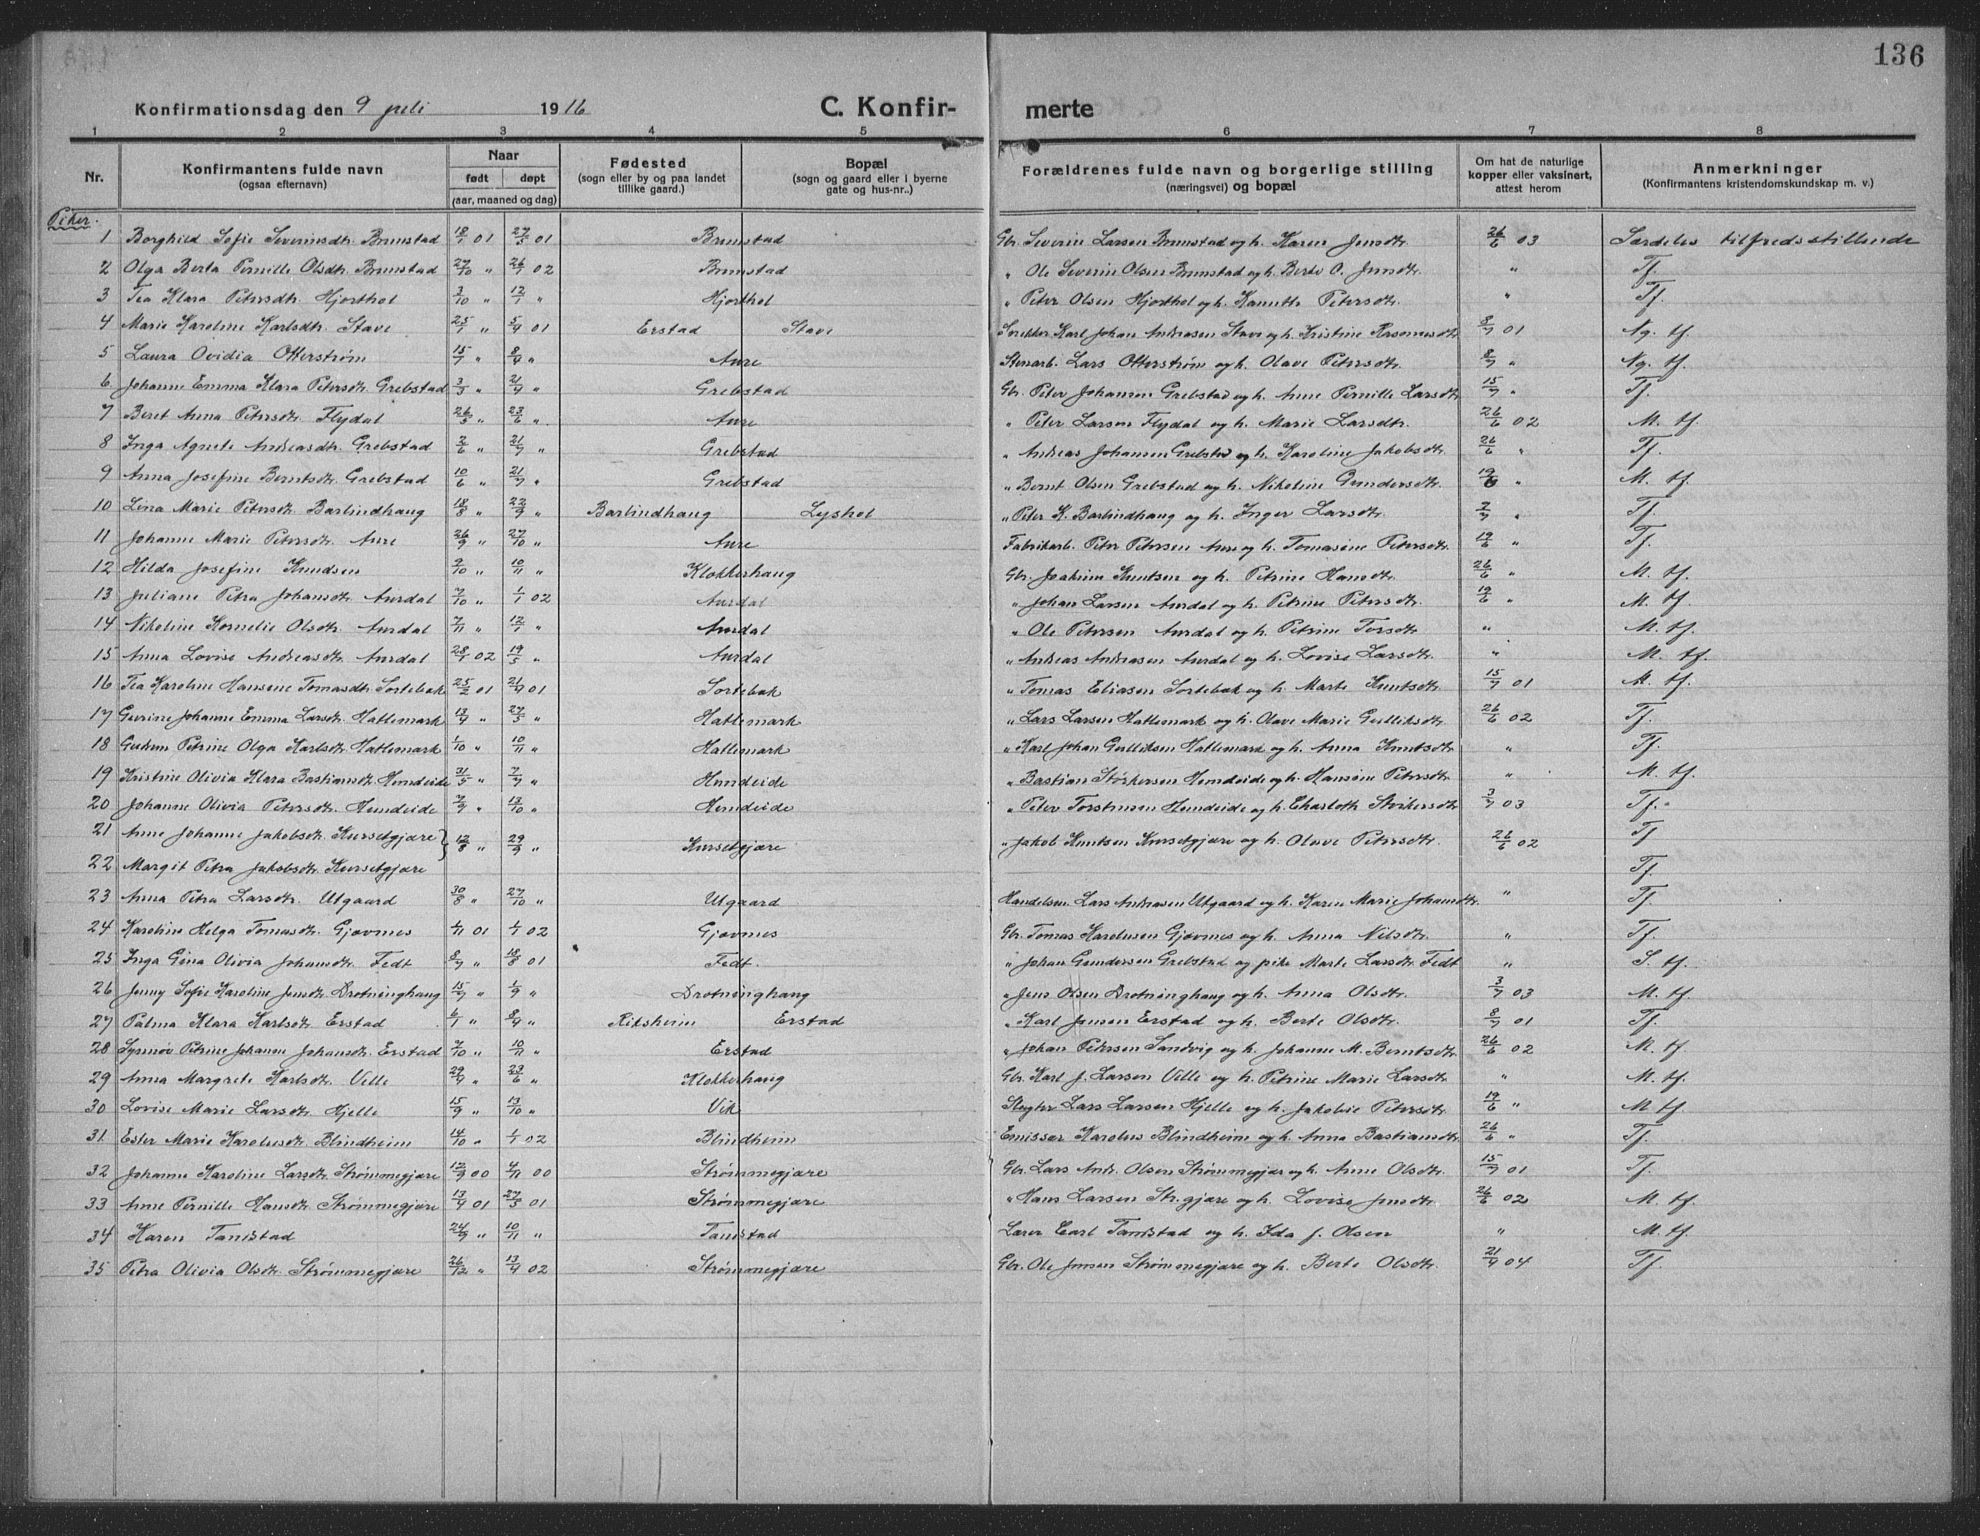 136
Konfirmationsdag den 9 juli 1916 C. Konfir- merte
1 2 3 4 5 6 7 8
Nr. Konfirmantens fulde navn (ogsaa efternavn) Naar født døpt (aar, maaned og dag) Fødested (sogn eller by og paa landet tillike gaard.) Bopæl (sogn og gaard eller i byerne gate og hus-nr..) Forældrenes fulde navn og borgerlige stilling (næringsvei) og bopæl Om hat de naturlige kopper eller vaksinert, attest herom Anmerkninger (Konfirmantens kristendomskundskap m. v.)
Piker.
1 Borghild Sofie Severinsdtr. Brunstad 18/1 01 27/5 01 Brunstad Gbr. Severin Larsen Brunstad og h. Karen Jensdtr. 26/6 03 Særdeles tilfredsstillende
2 Olga Berta Pernille Olsdtr. Brunstad 27/10 " 26/1 02 Brunstad " Ole Severin Olsen Brunstad og h. Berte O. Jensdtr. " Tf.
3 Tea Klara Petersdtr. Hjorthol 3/10 " 12/1 " Hjorthol " Peter Olsen Hjorthol og h. Hanette Petersdtr. " Tf.
4 Marie Karoline Karlsdtr. Stave 25/1 " 5/9 01 Erstad Stave Snekker Karl Johan Andreasen Stave og h. Kristine Rasmusdtr 8/7 01 Ng. tf.
5 Laura Ovidia Otterstrøm 15/7 " 8/9 " Aure Stenarb. Lars Otterstrøm og h. Olave Petersdtr. 8/7 " Ng. tf.
6 Johanne Emma Klara Petersdtr. Grebstad 3/3 " 21/4 " Grebstad Gbr. Peter Johansen Grebstad og h. Anne Pernille Larsdtr 15/7 " Tf.
7 Beret Anna Petersdtr. Flydal 26/5 " 23/6 " Aure " Peter Larsen Flydal og h. Marie Larsdtr. 26/6 02 M. tf.
8 Inga Agnete Andreasdtr. Grebstad 2/6 " 21/7 " Grebstad " Andreas Johansen Grebstad og h. Karoline Jakobsdtr. 26/6 " Tf.
9 Anna Josefine Berntsdtr. Grebstad 10/6 " 21/7 " Grebstad " Bernt Olsen Grebstad og h. Nikoline Gundersdtr. 19/6 " M. tf.
10 Lina Marie Petersdtr. Barlindhaug 18/8 " 22/9 " Barlindhaug Lyshol " Peter K. Barlindhaug og h. Inger Larsdtr. 2/7 " Tf.
11 Johanne Marie Petersdtr. Aure 26/9 " 27/10 " Aure Fabrikarb. Peter Petersen Aure og h. Tomasine Petersdtr. 19/6 " Tf.
12 Hilda Josefine Knudsen 9/10 " 10/11 " Klokkerhaug Gbr. Joakim Knutsen og h. Petrine Hansdtr. 26/6 " M. tf.
13 Juliane Petra Johansdtr. Aurdal 7/10 " 1/1 02 Aurdal " Johan Larsen Aurdal og h. Petrine Petersdtr. 19/6 " M. tf.
14 Nikoline Kornelie Olsdtr. Aurdal 7/11 " 12/1 " Aurdal " Ole Petersen Aurdal og h. Petrine Torsdtr. " M. tf.
15 Anna Lovise Andreasdtr. Aurdal 28/1 02 19/5 " Aurdal " Andreas Andreasen Aurdal og h. Lovise Larsdtr. " M. tf.
16 Tea Karoline Hansine Tomasdtr. Sortebak 25/2 01 21/4 01 Sortebak " Tomas Eliasen Sortebak og h. Marte Knutsdtr. 15/7 01 M. tf.
17 Gurine Johanne Emma Larsdtr. Hatlemark 13/4 " 27/5 " Hatlemark " Lars Larsen Hatlemark og h. Olave Marie Gulliksdtr. 26/6 02 Tf.
18 Gudrun Petrine Olga Karlsdtr. Hatlemark 1/10 " 10/11 " Hatlemark " Karl Johan Gulliksen Hatlemark og h. Anna Knutsdtr. " Tf.
19 Kristine Olivia Klara Bastiansdtr. Hundeide 31/5 " 7/7 " Hundeide " Bastian Størkersen Hundeide og h. Hansine Petersdtr. " M. tf.
20 Johanne Olivia Petersdtr. Hundeide 7/9 " 13/10 " Hundeide " Peter Torstensen Hundeide og h. Charlotte Sivertsdtr 3/7 03 Tf.
21 Anne Johanne Jakobsdtr. Kursetgjære } 12/8 " 29/9 " Kursetgjære " Jakob Knutsen Kursetgjære og h. Olave Petersdtr. 26/6 02 Tf
22 Margit Petra Jakobsdtr. Kursetgjære Tf.
23 Anna Petra Larsdtr. Utgaard 30/8 " 27/10 " Utgaard Handelsm. Lars Andreasen Utgaard og h. Karen Marie Johansdtr. " Tf.
24 Karoline Helga Tomasdtr. Gjævnes 1/11 01 1/1 02 Gjævnes Gbr. Tomas Karolusen Gjævnes og h. Anna Nilsdtr. " Tf.
25 Inga Gina Olivia Johansdtr. Fedt 8/7 " 18/8 01 Fedt. " Johan Gundersen Grebstad og pike Marte Larsdtr. Fedt " S. tf.
26 Jenny Sofie Karoline Jensdtr. Drotninghaug 15/7 " 1/9 " Drotninghaug " Jens Olsen Drotninghaug og h. Anna Olsdtr. 3/7 03 M. tf.
27 Palma Klara Karlsdtr. Erstad 6/1 " 8/9 " Riksheim Erstad " Karl Jensen Erstad og h. Berte Olsdtr. 8/7 01 Tf.
28 Synnøv Petrine Johanne Johansdtr. Erstad 7/10 " 10/11 " Erstad " Johan Petersen Sandvig og h. Johanne M. Berntsdtr. 26/6 02 M. tf.
29 Anna Margrete Karlsdtr. Velle 29/4 " 23/6 " Klokkerhaug Gbr. Karl J. Larsen Velle og h. Petrine Marie Larsdtr. " M. tf.
30 Lovise Marie Larsdtr. Hjelle 15/9 " 13/10 " Vik Slagter Lars Larsen Hjelle og h. Jakobie Petersdtr. 19/6 " M tf.
31 Ester Marie Karolusdtr. Blindheim 14/10 " 1/1 02 Blindheim Emissær Karolus Blindheim og h. Anna Bastiansdtr. 26/6 " Tf.
32 Johanne Karoline Larsdtr. Strømmegjære 17/9 00 4/11 00 Strømmegjære Gbr. Lars Andr. Olsen Strømmegjær og h. Anne Olsdtr. 15/7 01 Tf.
33 Anne Pernille Hansdtr. Strømmegjære 13/4 01 27/5 01 Strømmegjære " Hans Larsen Str.gjære og h. Lovise Jensdtr. 26/6 02 M. tf.
34 Karen Tandstad 24/9 " 10/11 " Tandstad Lærer Carl Tandstad og h. Ida J. Olsen " M. tf.
35 Petra Olivia Olsdtr. Strømmegjære 26/12 " 13/4 02 Strømmegjære Gbr. Ole Jensen Strømmegjære og h. Berte Olsdtr. 21/9 04 Tf.